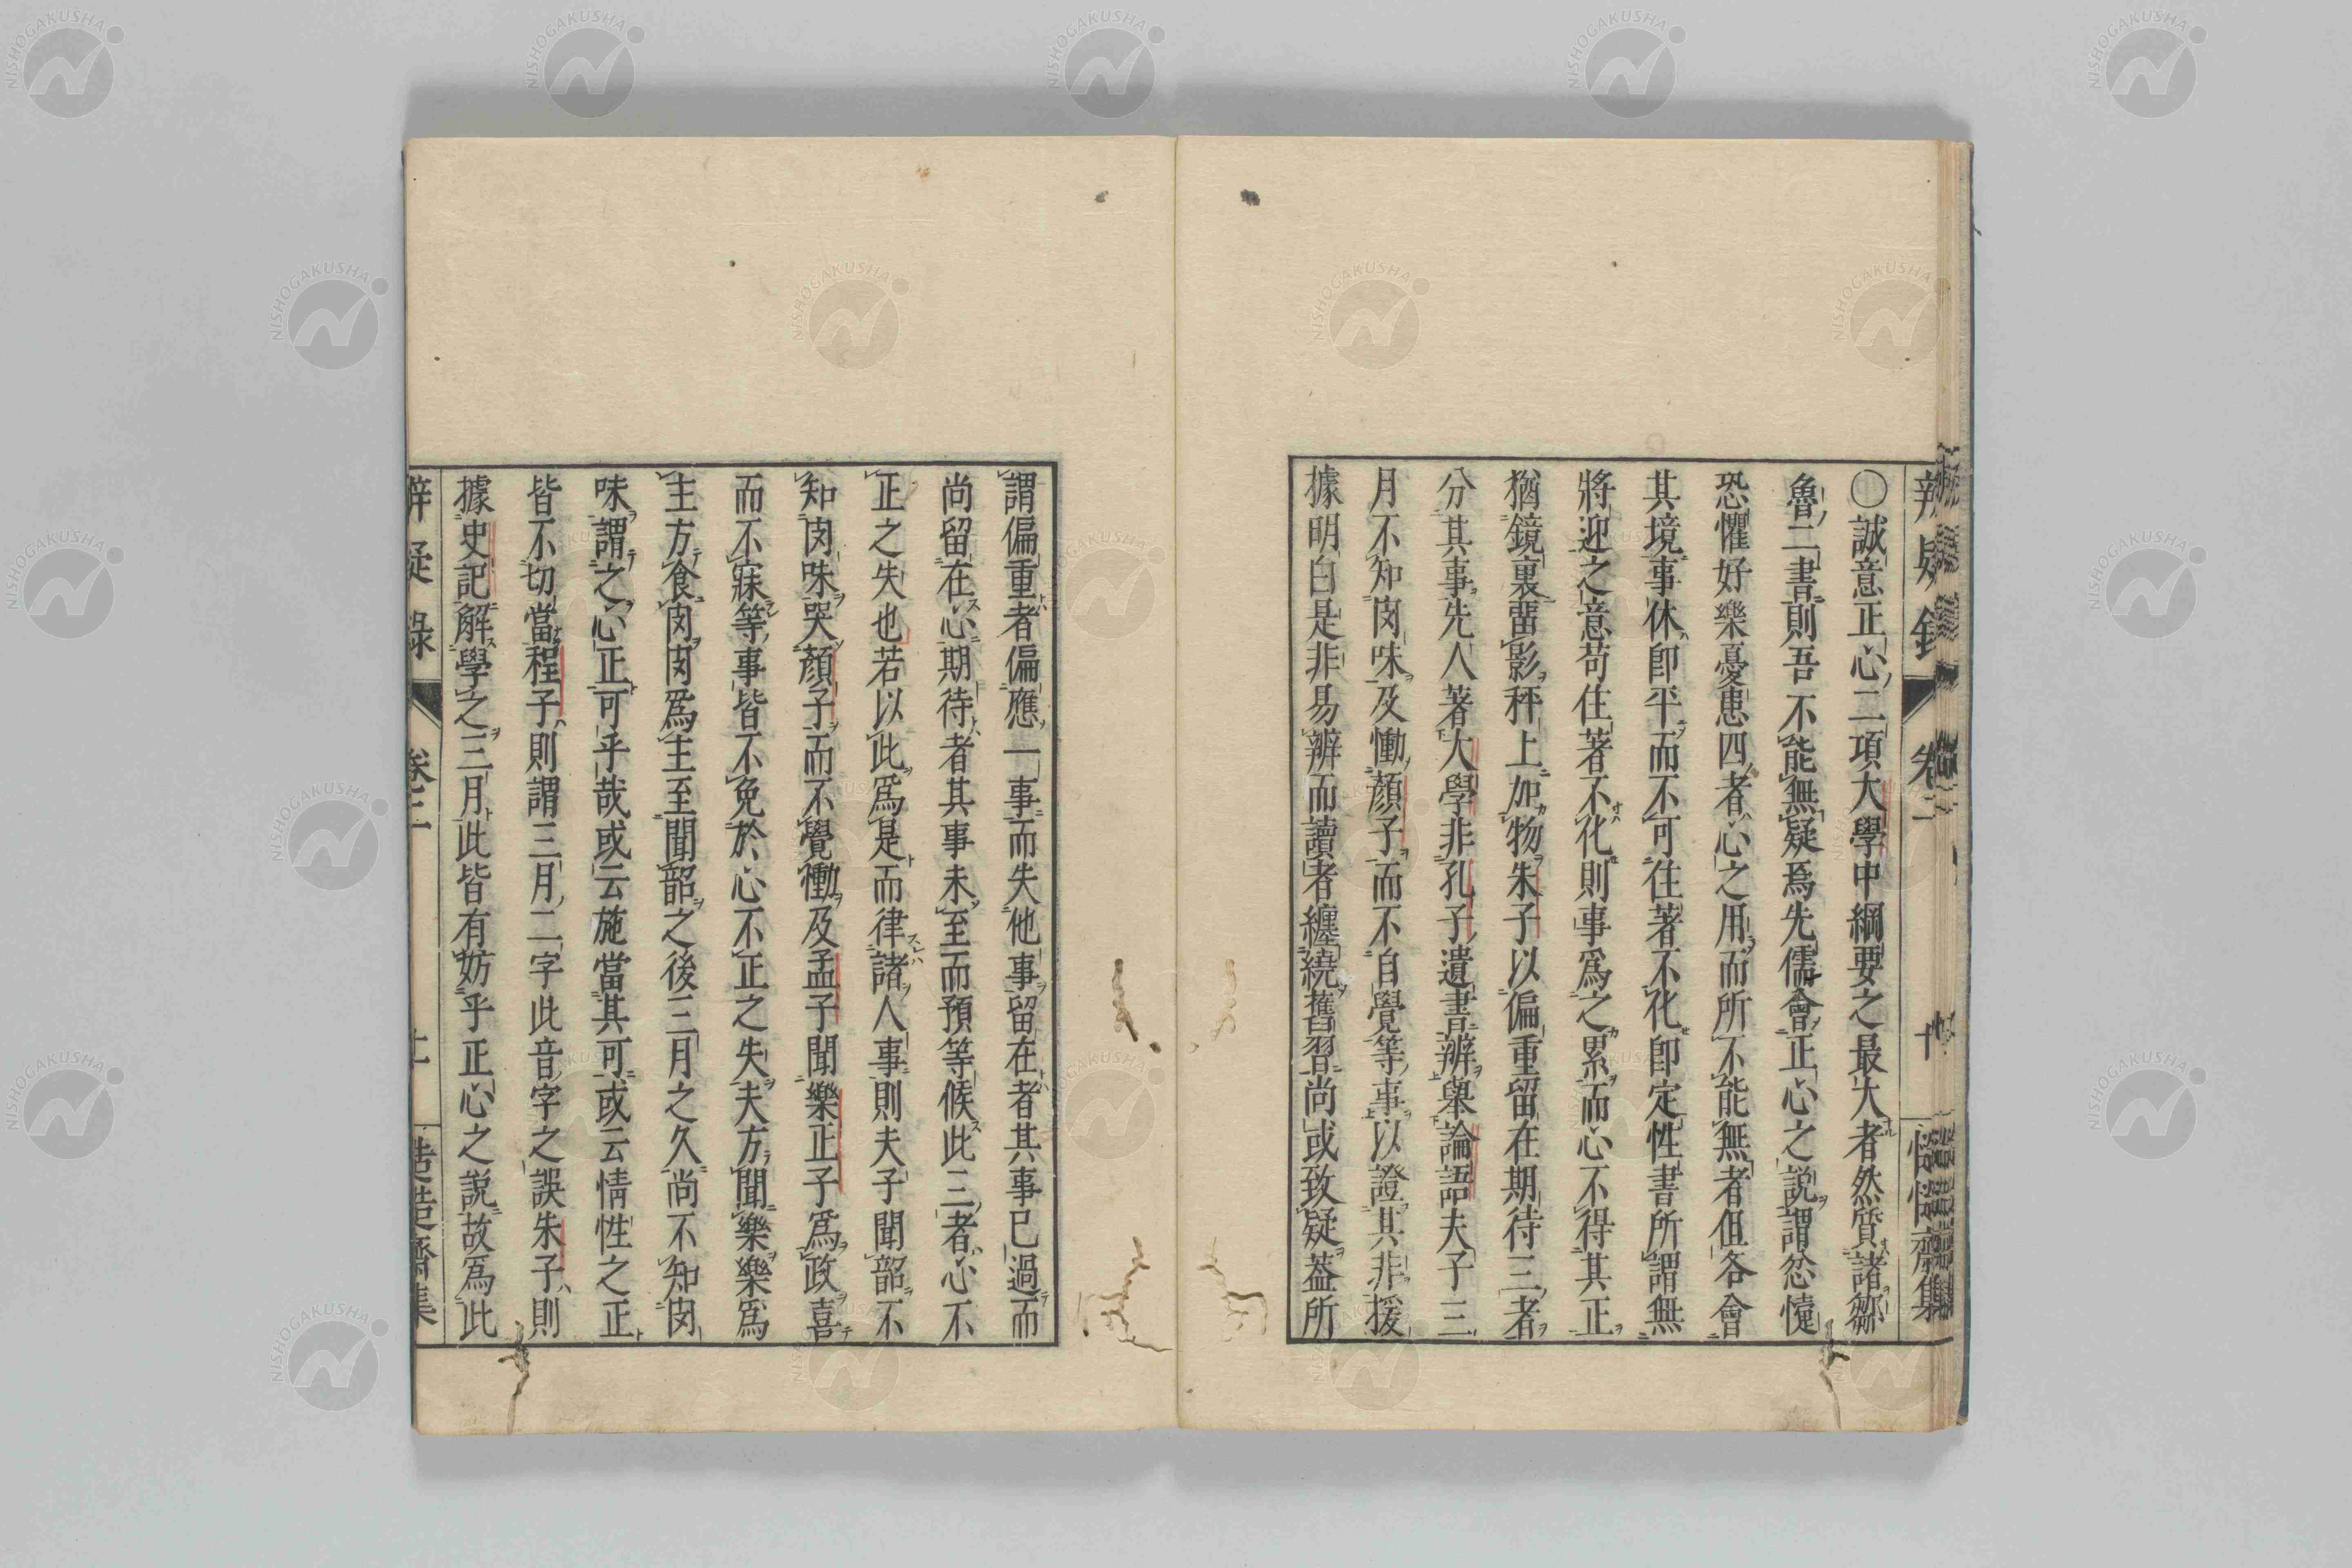 〇誠意正心二項大學中綱要之最大者然質諸鄒
魯二書則吾不能無疑焉先儒會正心之説謂忿懥
恐懼好樂憂患四者心之用而所不能無者但各會
其境事休卽平而不可住著不化卽定性書所謂無
將迎之意苟住著不化則事爲之累而心不得其正
猶鏡裏畱影秤上加物朱子以偏重留在期待三者
分其事先人著大學非孔子遺書辨舉論語夫子三
月不知肉味及慟顏子而不自覺等事以證其非援
據明白是非易辨而讀者纏繞舊習尚或致疑葢所
謂偏重者偏應一事而失他事留在者其事已過而
尚留在心期待者其事未至而預等候此三者心不
正之失也若以此爲是而律諸人事則夫子聞韶不
知肉味哭顏子而不覺慟及孟子聞樂正子爲政喜
而不寐等事皆不免於心不正之失夫方聞樂樂爲
主方食肉肉爲主至聞韶之後三月之久尚不知肉
味謂之心正可乎哉或云施當其可或云情性之正
皆不切當程子則謂三月二字此音字之誤朱子則
據史記解學之三月此皆有妨乎正心之説故爲此
辨疑錄
卷三